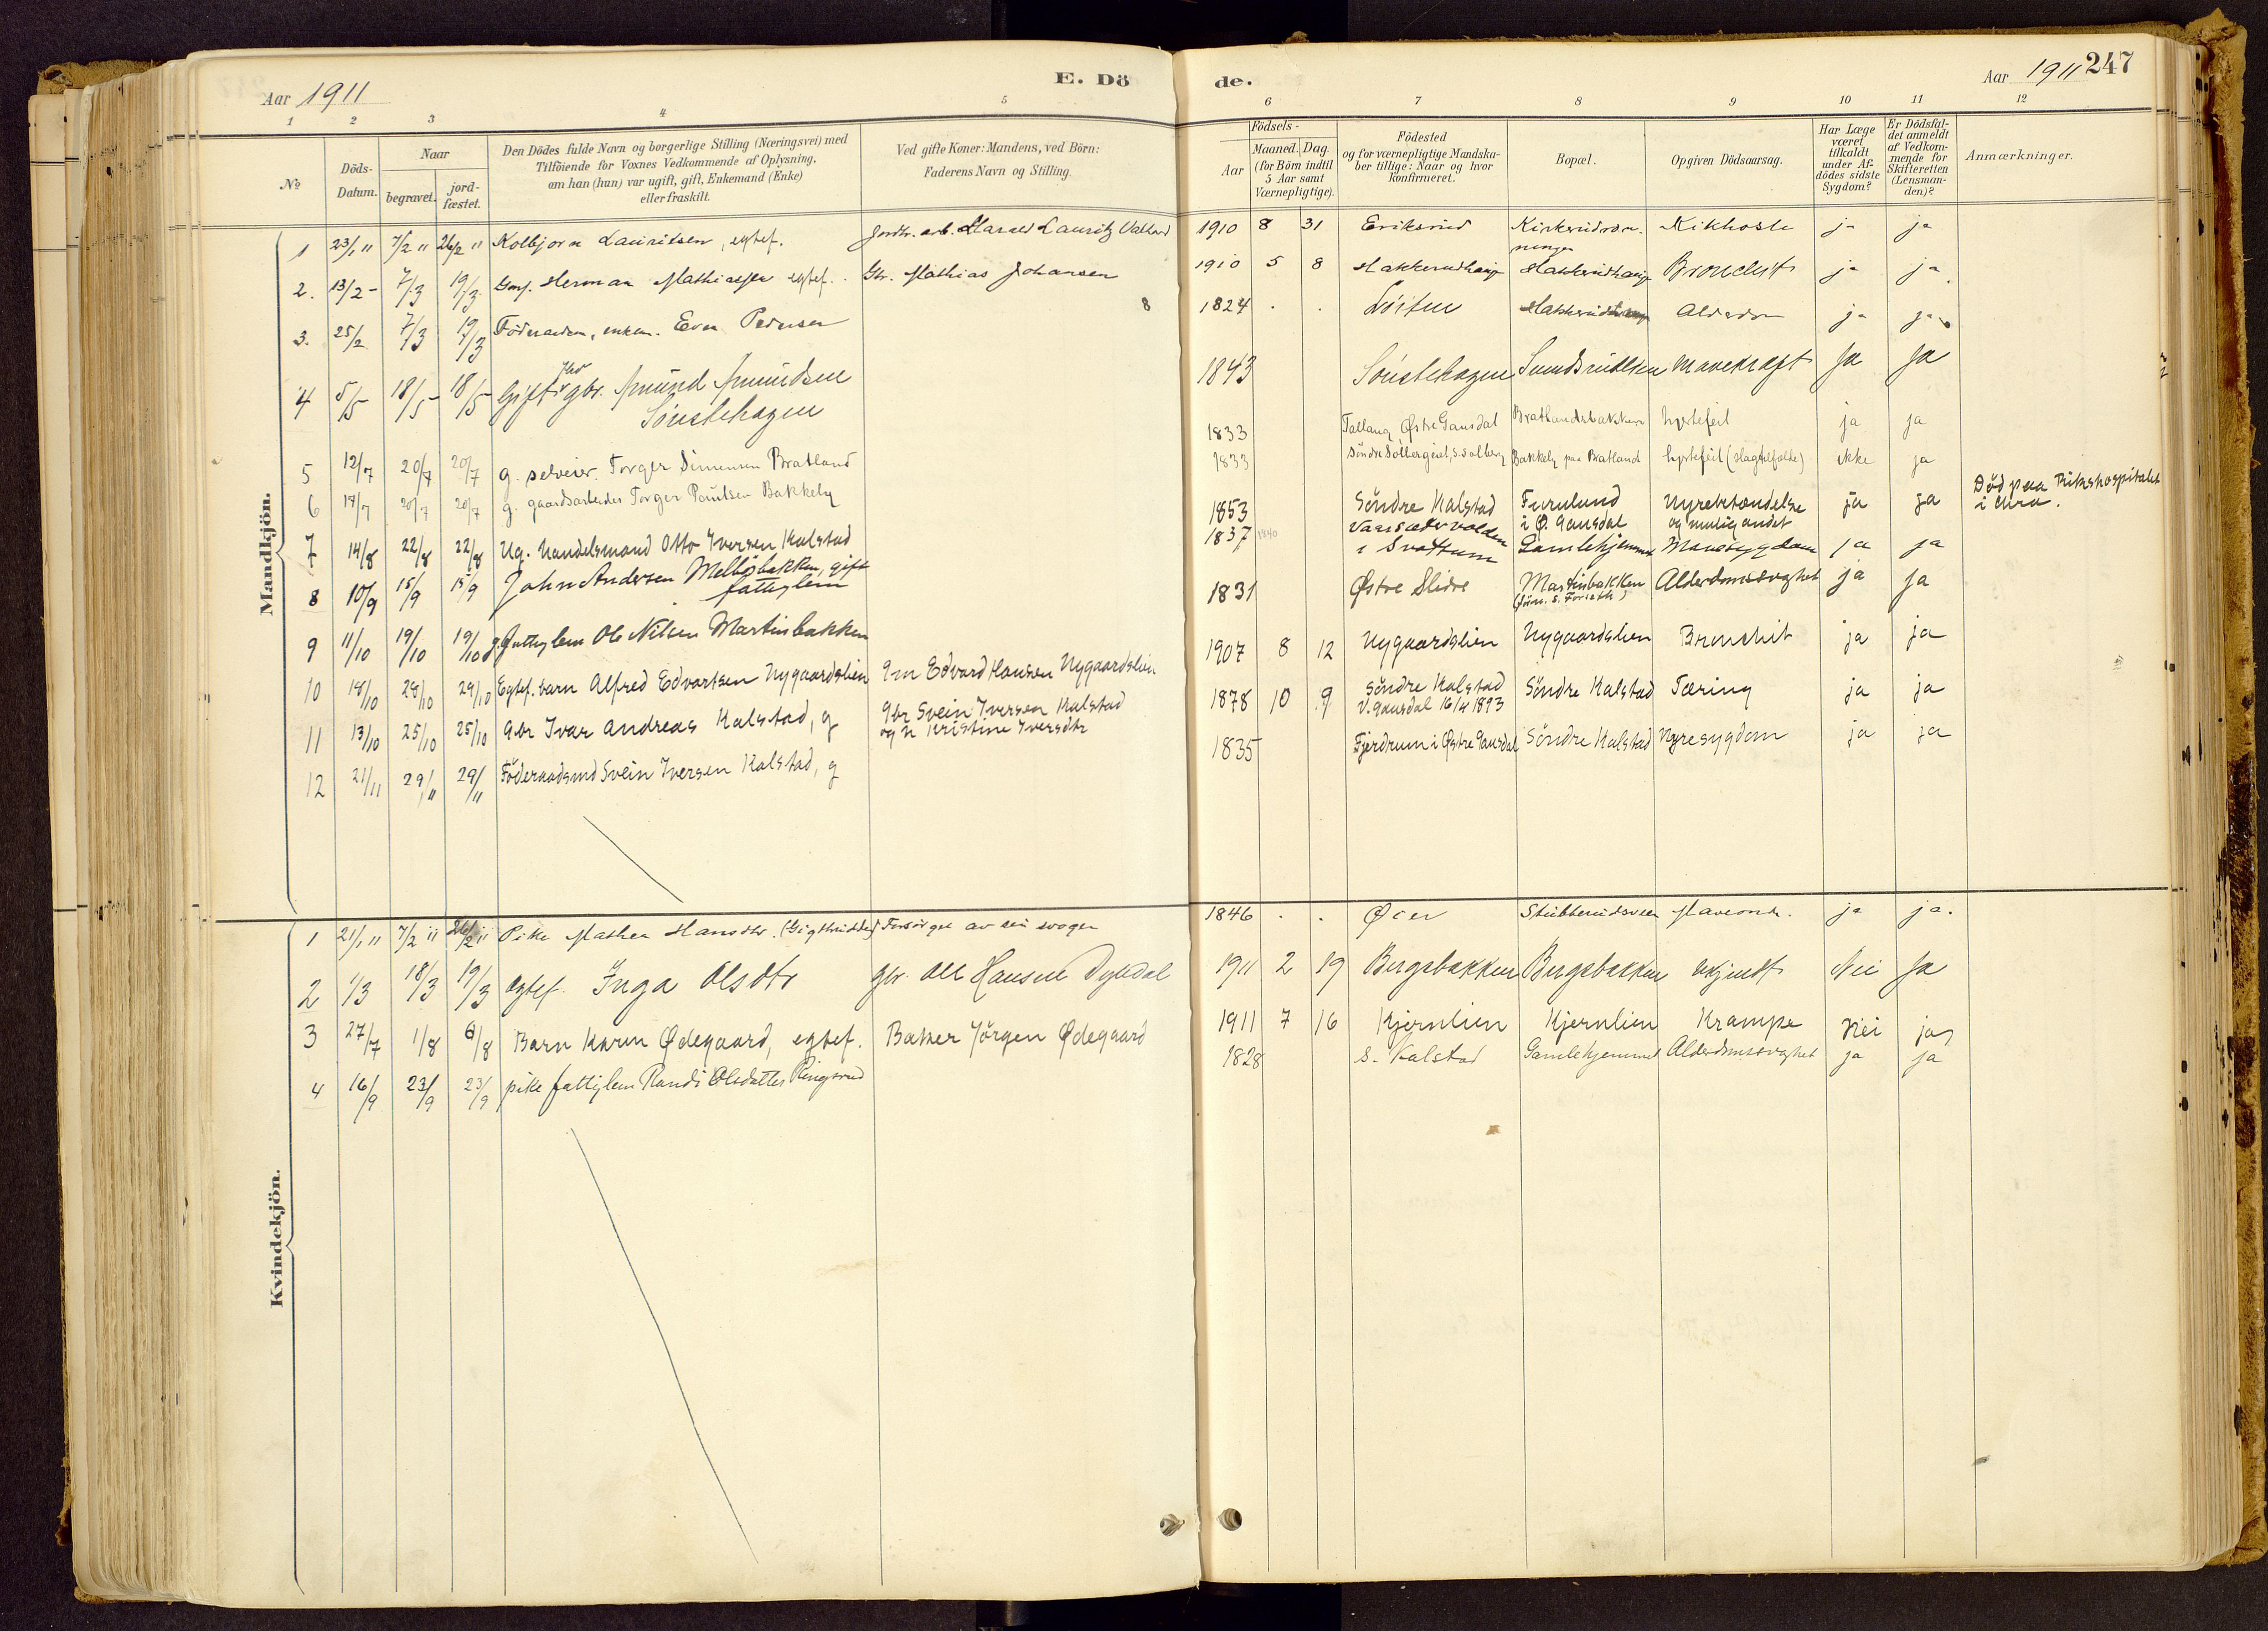 Aar 1911
E. Dö
de.
Aar 1911
247
1 2 3 4 5 6 7 8 9 10 11 12
No
Döds-Datum.
Naar
begravet.
jord-fæstet.
Den Dödes fulde Navn og borgerlige Stilling (Næringsvei) med
Tilföiende for Voxnes Vedkommende af Oplysning,
om han (hun) var ugift, gift, Enkemand (Enke)
eller fraskilt.
Ved gifte Koner: Mandens, ved Börn:
Faderens Navn og Stilling.
Födsels-
Aar
Maaned. Dag.
(for Börn indtil
5 Aar samt
Værnepligtige).
Födested
og for værnepligtige Mandska-
ber tillige: Naar og hvor
konfirmeret.
Bopæl.
Opgiven Dödsaarsag.
Har Læge
været
tilkaldt
under Af-
dödes sidste
Sygdom?
Er Dödsfal-
det anmeldt
af Vedkom-
mende for
Skifteretten
(Lensman-
den)?
Anmærkninger.
Mandkjön.
1 23/1 11 7/2 11 26/2 11 Kolbjorn Lauritsen, egtef. Harald Lauritz 1910 8 31 Eriksrud Kikhoste ja ja
2. 13/2 - 7/3 19/3 Herman Mathiassen egtef. Gbr. Mathias Johansen 1910 5 8 Hakkerudhaug Hakkerudhaug Bronchit ja ja.
3. 25/2 7/3 19/3 Even Pedersen 8 1824 . . Löiten Alderdom ja ja
4 5/5 18/5 18/5 Gift gbr. Amund Amundsen
Sönstehagen 1843 Sönstehagen mavekræft Ja Ja
5 12/7 20/7 20/7 g. selveier Torger Simensen Bratland 1833 Tallaug Østre Gausdal Bratlandsbakken hjertefeil ja ja
6 17/7 20/7 20/7 g. gaardsarbeider Torger Paulsen Bakkely 1833 Bakkely paa Bratland hjertefeil (slagtilfælde) ikke ja
7 14/8 22/8 22/8 Ug. Handelsmand Otto Iversen Kalstad 1853 Söndre Kalstad Furulund
i Ø. Gausdal Nyrebetændelse
og mulig andet ja ja Död paa Rikshospitalet
i Chra.
8 10/9 15/9 15/9 John Andersen Melböbakken, gift
fattiglem 1837 1840 i Svattum Gamlehjemmet Mavesygdom ja ja
9 11/10 19/10 19/10 g. Fattiglem Ole Nilsen Martinbakken 1831 Østre Slidre Martinbakken Alderdomssvaghet ja ja
10 18/10 28/10 29/10 Egtef. barn Alfred Edvartsen Nygaardslien Edvard Hansen Nygaardslien 1907 8 12 Nygaardslien Nygaardslien Bronchit ja ja
11 13/10 25/10 25/10 Gbr Ivar Andreas Kalstad, g Gbr Svein Iversen Kalstad
og h Kristine Iversdtr 1878 10 9 Söndre Kalstad
V. Gausdal 16/4 1893 Söndre Kalstad Tæring ja ja
12 21/11 29/11 29/11 Föderaadsmd Svein Iversen Kalstad, g 1835 Fjerdrum i Østre Gausdal Söndre Kalstad Nyresygdom ja ja
Kvindekjön.
1 21/1 11 7/2 11 26/2 11 Pike Mathea Hansdtr. Forsörges av sin svoger 1846 . . Öier Maveonde. ja ja.
2 1/3 18/3 19/3 egtef. Inga Olsdtr gbr. Ole Hansen 1911 2 19 Bergebakken Bergebakken ukjendt Nei Ja
3 27/7 1/8 6/8 Barn Karen Ødegaard, egtef. Baker Jörgen Ødegaard 1911 7 16 Kjernlien Kjernlien Krampe Nei ja
4 16/9 23/9 23/9 pike fattiglem Randi Olsdatter Ringsrud 1828 S. Kalstad Gamlehjemmet Alderdomssvaghet ja ja